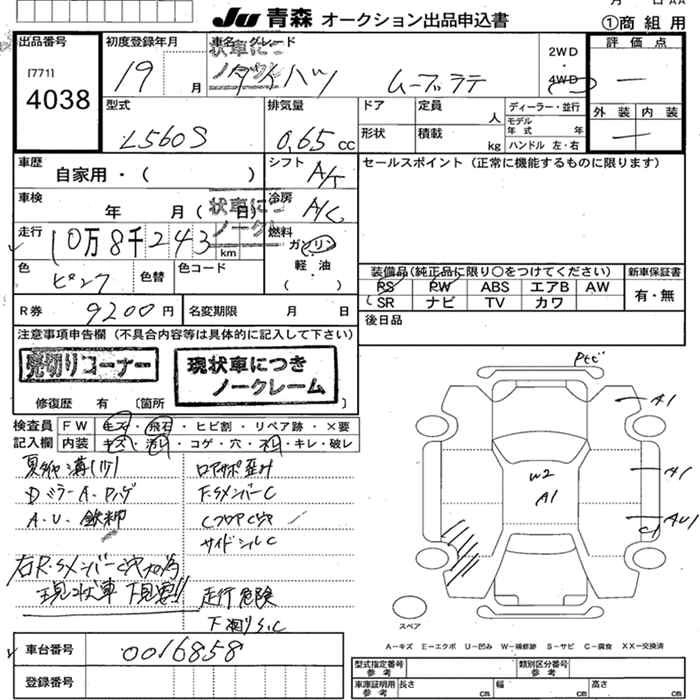 JU 青森 オークション出品申込書
①商 組 用
出品番号
[771]
4038
初度登録年月
19 月
車名・グレード
ダイハツ ムーブラテ
2WD
・
4WD
評 価 点
―
外 装 内 装
―
型式
L560S
排気量
0.65 cc
ドア
定員 人
形状
積載 kg
ディーラー・並行
モデル
年 式 年
ハンドル 左・右
車歴
自家用・( )
シフト
A/T
車検
年 月( 日)
冷房
A/C
状車に
ノークレ
走行
10万8千243 km
燃料
ガソリン
軽・油
( )
色
ピンク
色替
色コード
R券
9200円
名変期限 月 日
セールスポイント(正常に機能するものに限ります)
装備品(純正品に限り○をつけてください)
新車保証書
PS PW ABS エアB AW
SR ナビ TV カワ
有・無
後日品
注意事項申告欄(不具合内容等は具体的に記入して下さい)
売切りコーナー
現状車につき
ノークレーム
修復歴 有 〔箇所
検査員
記入欄
FW キズ・飛石・ヒビ割・リペア跡・×要
内装 キズ・汚レ・コゲ・穴・スレ・キレ・破レ
Dミラー A・Pハゲ
A.U.
F.SメンバーC
CフロアC穴
サイドシルC
右R.Sメンバー C穴
現状車 下見要!!
走行危険
下廻りS.C
A1
A1
W2
A1
AU1
C1
スペア
A-キズ E-エクボ U-凹み W-補修跡 S-サビ C-腐食 XX-交換済
車台番号
0016858
登録番号
型式指定番号
参 考
類別区分番号
参 考
車庫証明用
参 考
長さ cm
幅 cm
高さ cm